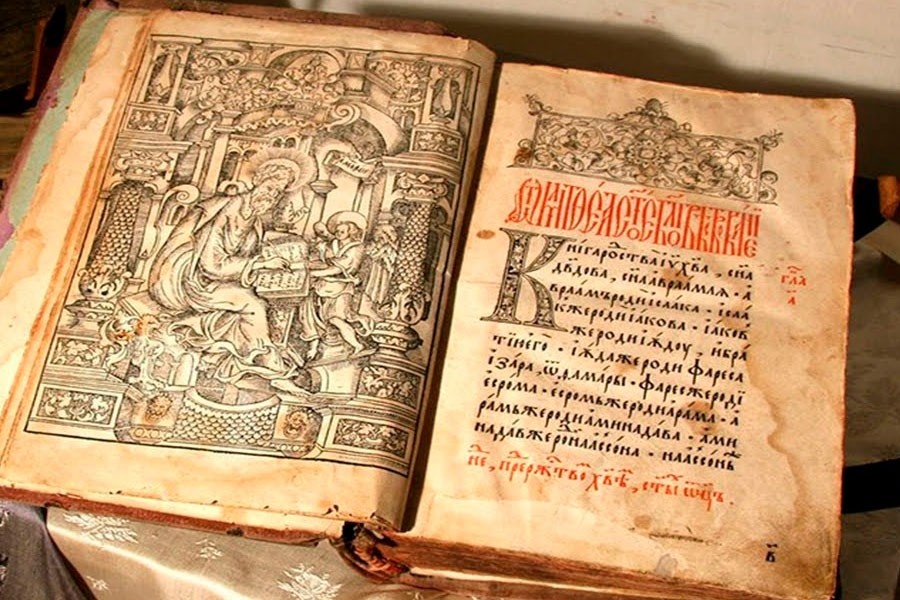 Книга родства і҃у х҃ва, сн҃а
дв҃дова, сн҃а авраамлѧ · а
враамъ роди исаака · исаа
къ же роди іакова · іаков
же роди іюдоу, и бра
тїю его · іюда же роди фареса
и зара, ѿ фамары · фаресъ же роди
есрома · есромъ же роди арама · а
рамъ же роди аминадава · ами
надавъ же роди наассона · наассонъ
не, пре ржⷭтво х҃вѣ, ст҃ы ѿц҃ъ.
гла
а҃
в҃